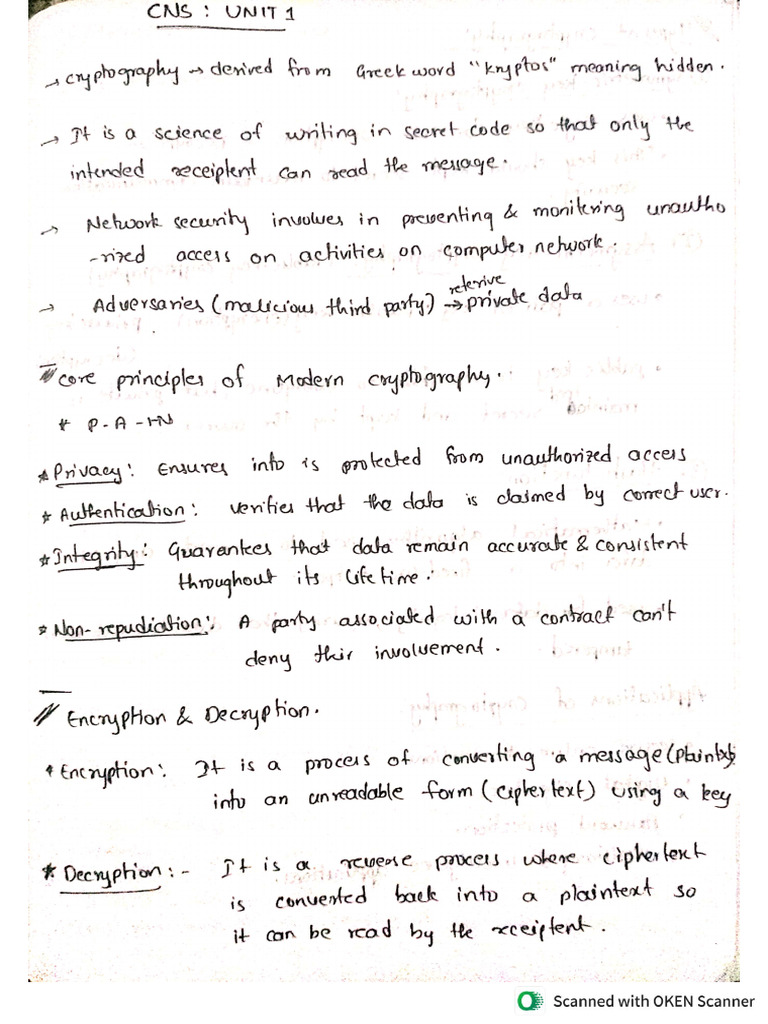 CNS : UNIT 1
→ cryptography → derived from Greek word "kryptos" meaning hidden.
→ It is a science of writing in secret code so that only the
intended receipient can read the message.
→ Network security involves in preventing & monitering unautho
-rized access on activities on computer network.
→ Adversaries (malicious third party) → reterive private data
core principles of Modern cryptography.
* P-A-IN
* Privacy: Ensures info is protected from unauthorized access
* Authentication: verifies that the data is claimed by correct user.
* Integrity: Guarantees that data remain accurate & consistent
throughout its life time.
* Non-repudiation: A party associated with a contract can't
deny thir involvement.
Encryption & Decryption.
* Encryption: It is a process of converting a message (Plaintxt)
into an unreadable form (ciphertext) using a key
* Decryption:- It is a reverse process where ciphertext
is converted back into a plaintext so
it can be read by the receiptent.
Scanned with OKEN Scanner